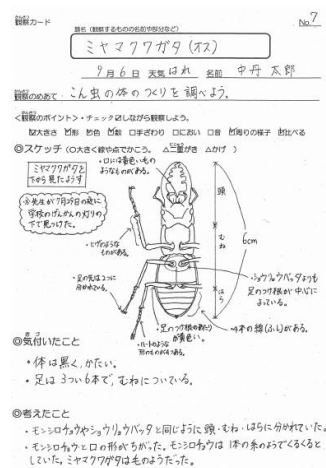 観察カード
No.7
題名（観察するものの名前や部分など）
ミヤマクワガタ（オス）
9月6日 天気 はれ 名前 中丹 太郎
観察のめあて こん虫の体のつくりを調べよう。
＜観察のポイント・チェック☑しながら観察しよう。
☑大きさ ☑形 ☑色 ☑数 □手ざわり □におい □音 ☑周りの様子 ☑比べる
◎スケッチ（〇大きく線や点でかこう。 △二重がき △かげ ）
ミヤマクワガタを
下から見たようす
・口には黄色いもの
ようなものがある。
※先生が7月29日の夜に
学校のげんかんの灯りの
下で見つけた。
・ヒゲのような
ものがある。
頭
むね
はら
6cm
・足の先は2つに
分かれている。
・ショウリョウバッタよりも
足のつけ根が中心に
よっている。
・足のつけ根あたり
が黄色い。
・4本の線(ふし)がある。
・ハートのような
形のものがある。
◎気付いたこと
・体は黒く、かたい。
・足は3つい6本で、むねについている。
◎考えたこと
・モンシロチョウやショウリョウバッタと同じように頭・むね・はらに分かれていた。
・モンシロチョウと口の形がちがった。モンシロチョウは1本の糸のようでくるくると
していた。ミヤマクワガタは毛のようだった。